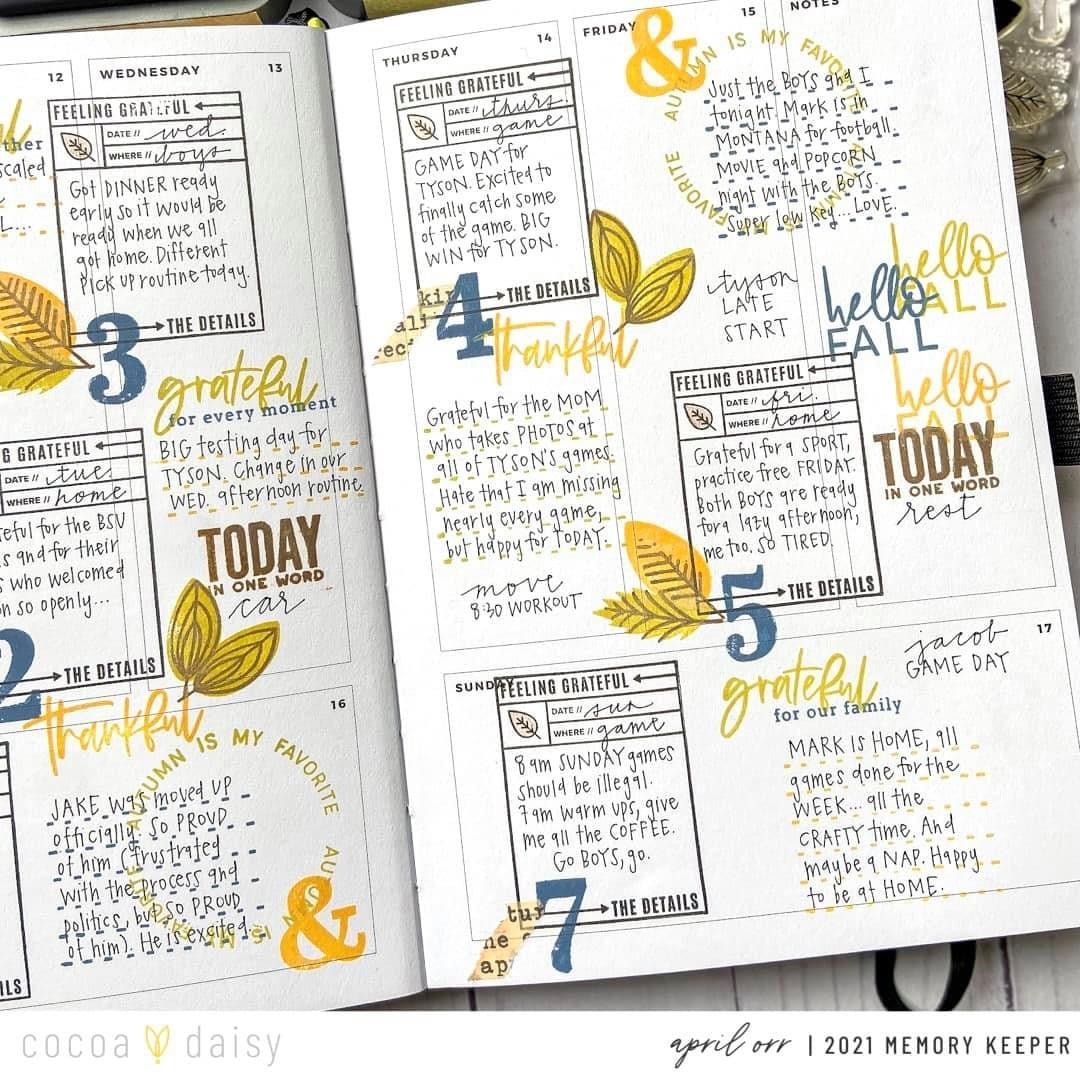 12
ther
scaled
L...
WEDNESDAY 13
FEELING GRATEFUL
DATE // wed.
WHERE // boys
Got DINNER ready
early so it would be
ready when we all
got home. Different
Pick up routine today.
THE DETAILS
3
grateful
for every moment
BIG testing day for
TYSON. Change in our
WED. afternoon routine.
TODAY
IN ONE WORD
car
G GRATEFUL
DATE // tue.
WHERE // home
teful for the BSU
s and for their
s who welcomed
n so openly...
THE DETAILS
2
thankful
16
AUTUMN IS MY FAVORITE
AUTUMN IS MY FAVORITE
JAKE was moved up
officially. SO PROUD
of him (frustrated
with the process and
politics, but SO PROUD
of him). He is excited.
&
ILS
THURSDAY 14
FEELING GRATEFUL
DATE // thurs.
WHERE // game
GAME DAY for
TYSON. Excited to
finally catch some
of the game. BIG
WIN for TYSON.
THE DETAILS
kin
alt
rect
4
thankful
Grateful for the MOM
who takes PHOTOS at
all of TYSON'S games.
Hate that I am missing
nearly every game,
but happy for TODAY.
move
8:30 WORKOUT
FRIDAY 15
&
AUTUMN IS MY FAVORITE
AUTUMN IS MY FAVORITE
Just the BOYS and I
tonight. Mark is in
MONTANA for football.
MOVIE and POPCORN
night with the BOYS.
Super low key... LOVE.
tyson
LATE
START
FEELING GRATEFUL
DATE // fri.
WHERE // home
Grateful for a SPORT,
practice free FRIDAY.
Both BOYS are ready
for a lazy afternoon,
me too. SO TIRED.
THE DETAILS
5
NOTES
hello
FALL
hello
FALL
hello
FALL
TODAY
IN ONE WORD
rest
SUNDAY 17
FEELING GRATEFUL
DATE // sun
WHERE // game
8 am SUNDAY games
should be illegal.
7am warm ups, give
me all the COFFEE.
GO BOYS, go.
THE DETAILS
tur
he
ap
7
grateful
for our family
jacob
GAME DAY
MARK IS HOME, all
games done for the
WEEK... all the
CRAFTY time. And
maybe a NAP. Happy
to be at HOME.
cocoa daisy
april orr | 2021 MEMORY KEEPER